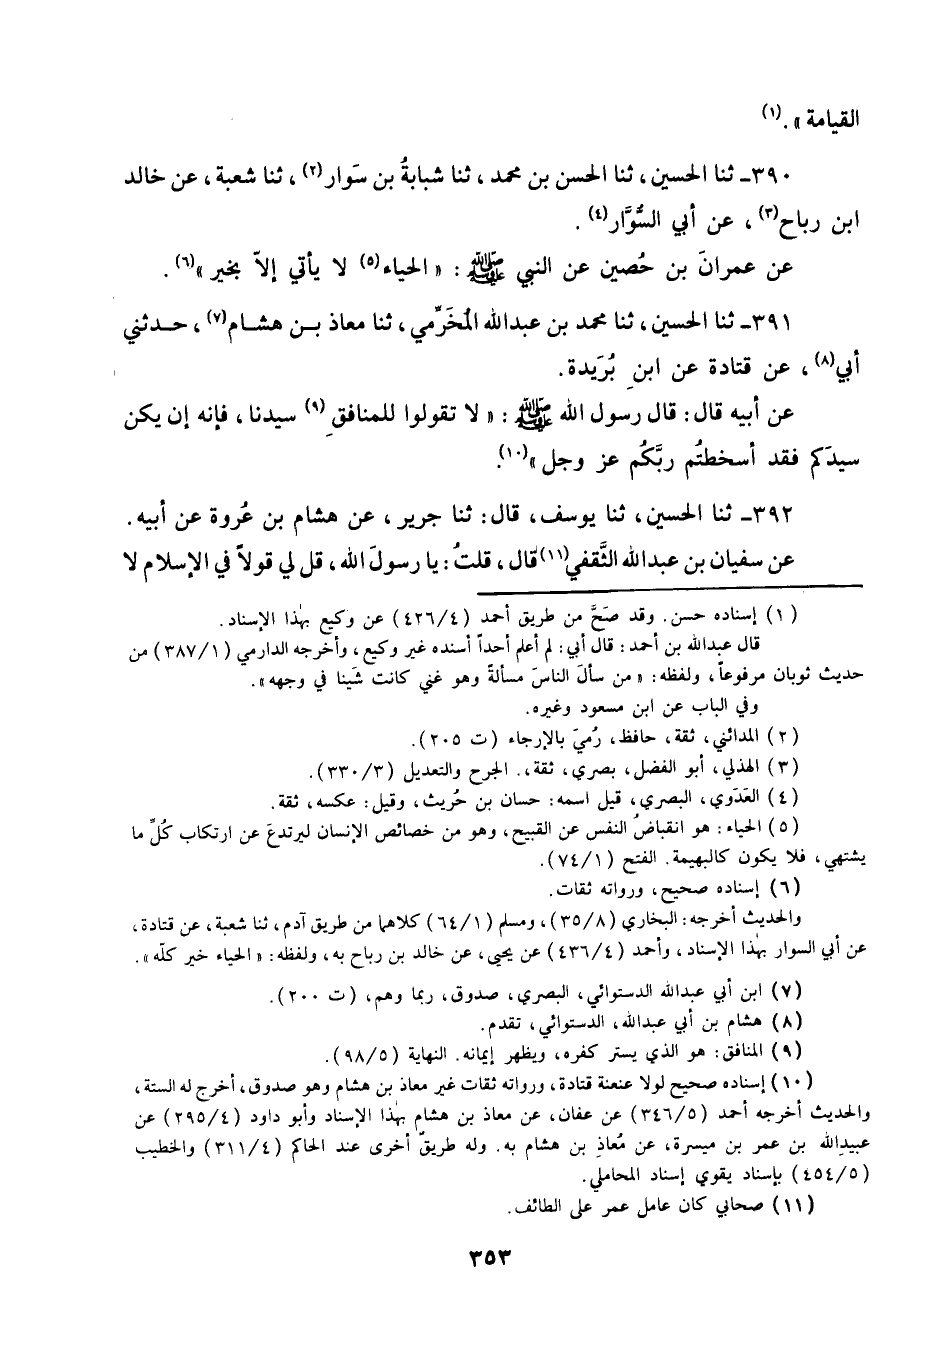 القيامة » .(١)
٣٩٠ـ ثنا الحسين ، ثنا الحسن بن محمد ، ثنا شبابةُ بن سَوار(٢) ، ثنا شعبة ، عن خالد
ابن رباح(٣) ، عن أبي السُّوَّار(٤) .
عن عمرانَ بن حُصين عن النبي ﷺ : « الحياء(٥) لا يأتي إلاّ بخير »(٦) .
٣٩١ـ ثنا الحسين ، ثنا محمد بن عبدالله المُخَرِّمي ، ثنا معاذ بـن هشـام(٧) ، حـدثني
أبي(٨) ، عن قتادة عن ابنِ بُرَيدة .
عن أبيه قال : قال رسول الله ﷺ : « لا تقولوا للمنافقِ(٩) سيدنا ، فإنه إن يكن
سيدَكم فقد أسخطتُم ربَّكُم عز وجل »(١٠).
٣٩٢ـ ثنا الحسين ، ثنا يوسف ، قال : ثنا جرير ، عن هشام بن عُروة عن أبيه .
عن سفيان بن عبدالله الثَّقفي(١١) قال ، قلتُ : يا رسولَ الله ، قل لي قولاً في الإسلام لا
(١) إسناده حسن . وقد صَحَّ من طريق أحمد (٤٢٦/٤) عن وكيع بهٰذا الإسناد .
قال عبدالله بن أحمد : قال أبي : لم أعلم أحداً أسنده غير وكيع ، وأخرجه الدارمي (٣٨٧/١) من
حديث ثوبان مرفوعاً ، ولفظه : « من سألَ الناسَ مسألةً وهو غني كانت شَينا في وجهه » .
وفي الباب عن ابن مسعود وغيره .
(٢) المدائني ، ثقة ، حافظ ، رُميَ بالإرجاء (ت ٢٠٥) .
(٣) الهذلي ، أبو الفضل ، بصري ، ثقة ، . الجرح والتعديل (٣٣٠/٣) .
(٤) العَدَوي ، البصري ، قيل اسمه : حسان بن حُريث ، وقيل : عكسه ، ثقة .
(٥) الحياء : هو انقباضُ النفس عن القبيح ، وهو من خصائص الإنسان ليرتدعَ عن ارتكاب كُلِّ ما
يشتهي ، فلا يكون كالبهيمة . الفتح (٧٤/١) .
(٦) إسناده صحيح ، ورواته ثقات .
والحديث أخرجه : البخاري (٣٥/٨) ، ومسلم (٦٤/١) كلاهما من طريق آدم ، ثنا شعبة ، عن قتادة ،
عن أبي السوار بهٰذا الإسناد ، وأحمد (٤٣٦/٤) عن يحيى ، عن خالد بن رباح به ، ولفظه : « الحياء خير كلّه » .
(٧) ابن أبي عبدالله الدستوائي ، البصري ، صدوق ، ربما وهم ، (ت ٢٠٠) .
(٨) هشام بن أبي عبدالله ، الدستوائي ، تقدم .
(٩) المنافق : هو الذي يستر كفره ، ويظهر إيمانه . النهاية (٩٨/٥) .
(١٠) إسناده صحيح لولا عنعنة قتادة ، ورواته ثقات غير معاذ بن هشام وهو صدوق ، أخرج له الستة ،
والحديث أخرجه أحمد (٣٤٦/٥) عن عفان ، عن معاذ بن هشام بهٰذا الإسناد وأبو داود (٢٩٥/٤) عن
عبيدالله بن عمر بن ميسرة ، عن مُعاذِ بن هشام به . وله طريقٌ أخرى عند الحاكم (٣١١/٤) والخطيب
(٤٥٤/٥) بإسناد يقوي إسناد المحاملي .
(١١) صحابي كان عامل عمر على الطائف .
٣٥٣